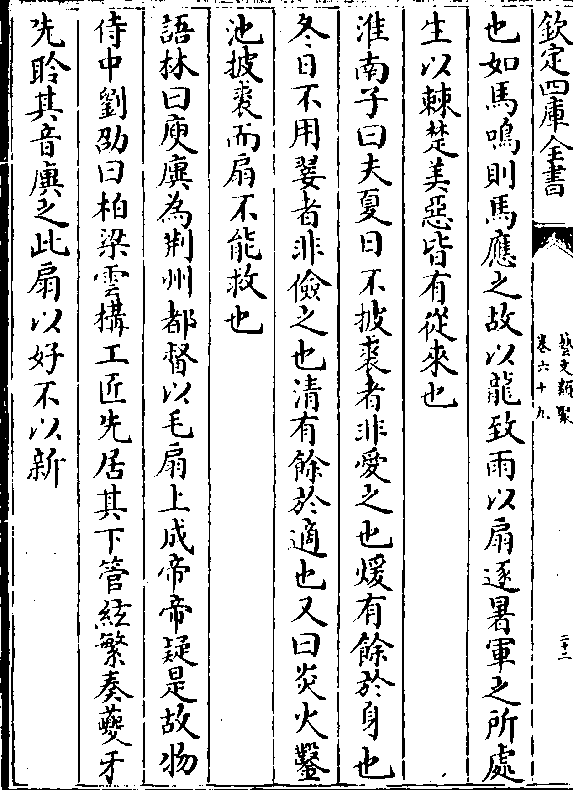 欽定四庫全書
藝文類聚
卷六十九
二十二
也如馬鳴則馬應之故以龍致雨以扇逐暑軍之所處
生以棘楚美惡皆有從來也
淮南子曰夫夏日不披裘者非愛之也煖有餘於身也
冬日不用翣者非儉之也清有餘於適也又曰炎火鑿
池披裘而扇不能救也
語林曰庾廙為荆州都督以毛扇上成帝帝疑是故物
侍中劉劭曰柏梁雲構工匠先居其下管絃繁奏夔牙
先聆其音廙之此扇以好不以新